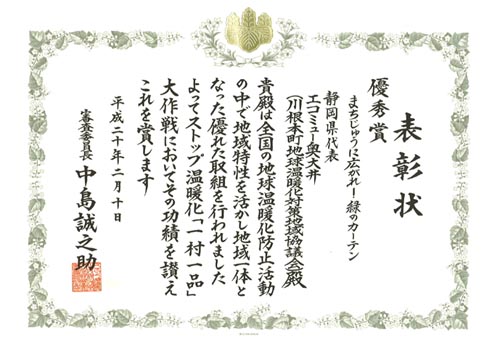 表彰状
優秀賞
まちじゅうに広がれ!緑のカーテン
静岡県代表
エコミュー奥大井
(川根本町地球温暖化対策地域協議会)殿
貴殿は全国の地球温暖化防止活動
の中で地域特性を活かし地域一体と
なった優れた取組を行われました
よってストップ温暖化「一村一品」
大作戦においてその功績を讃え
これを賞します
平成二十年二月十日
審査委員長 中島誠之助